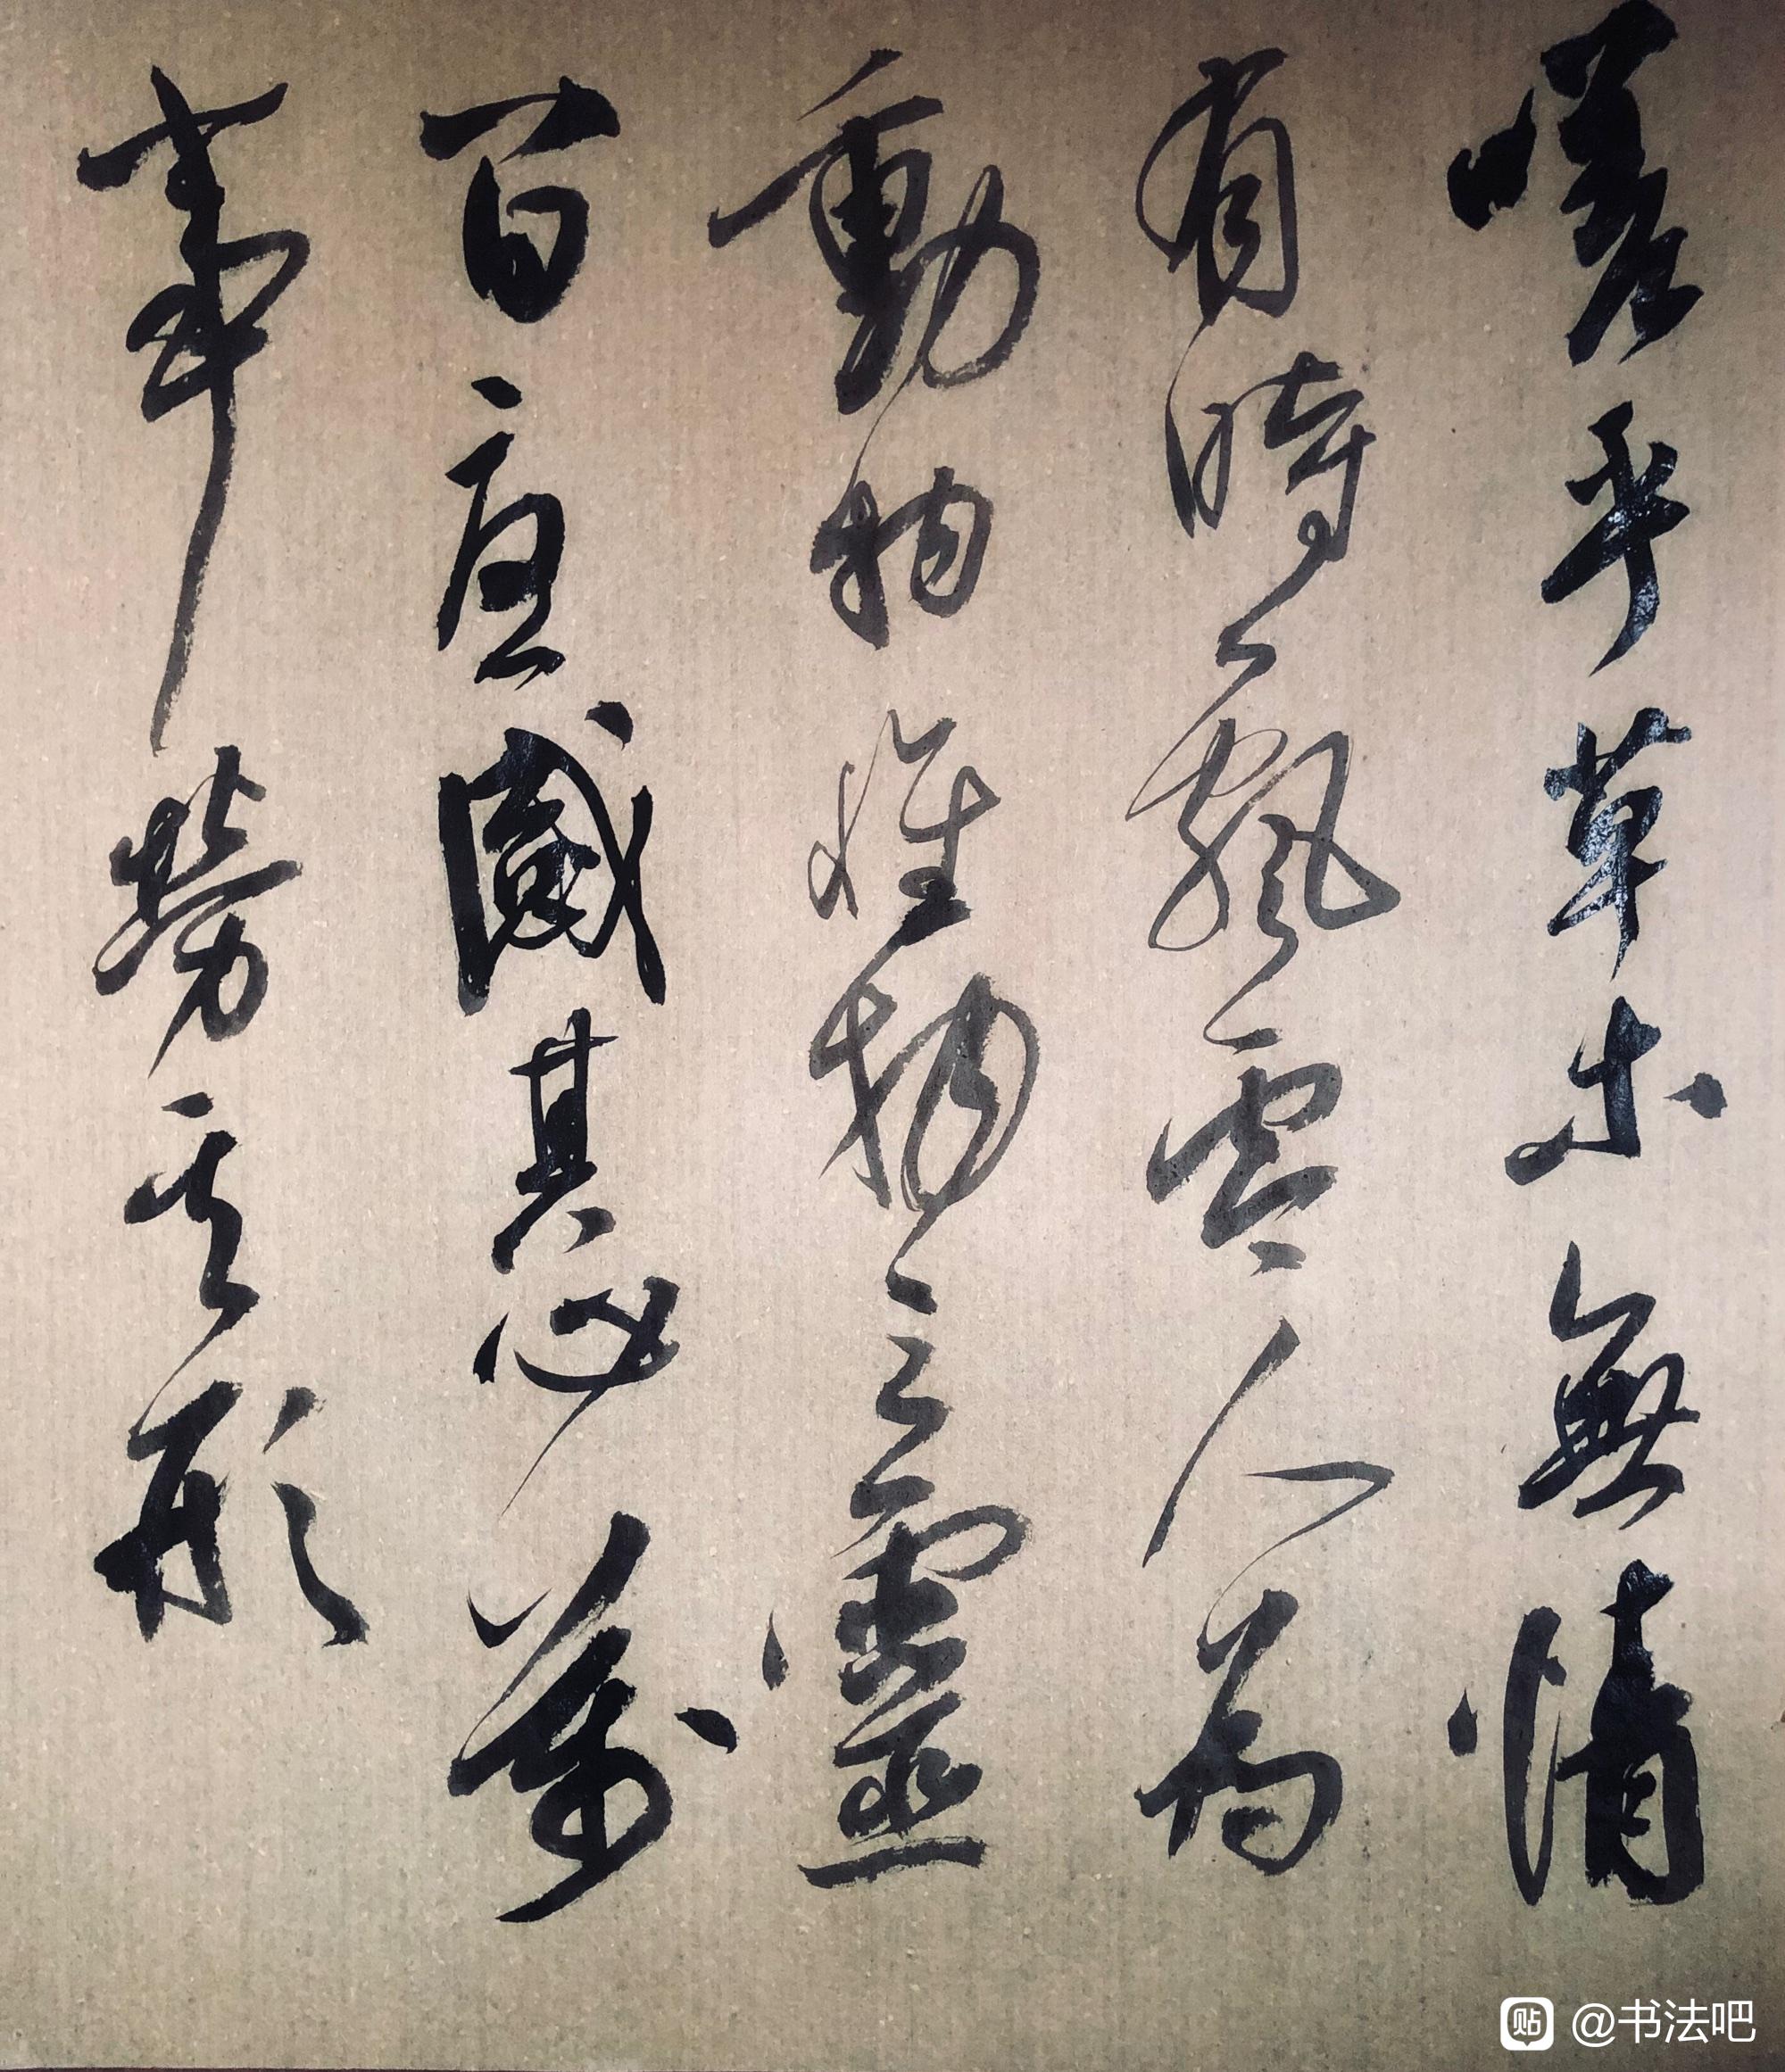 嗟乎草木無情
有時飄零人為
動物惟物之靈
百憂感其心萬
事勞其形
貼 @书法吧